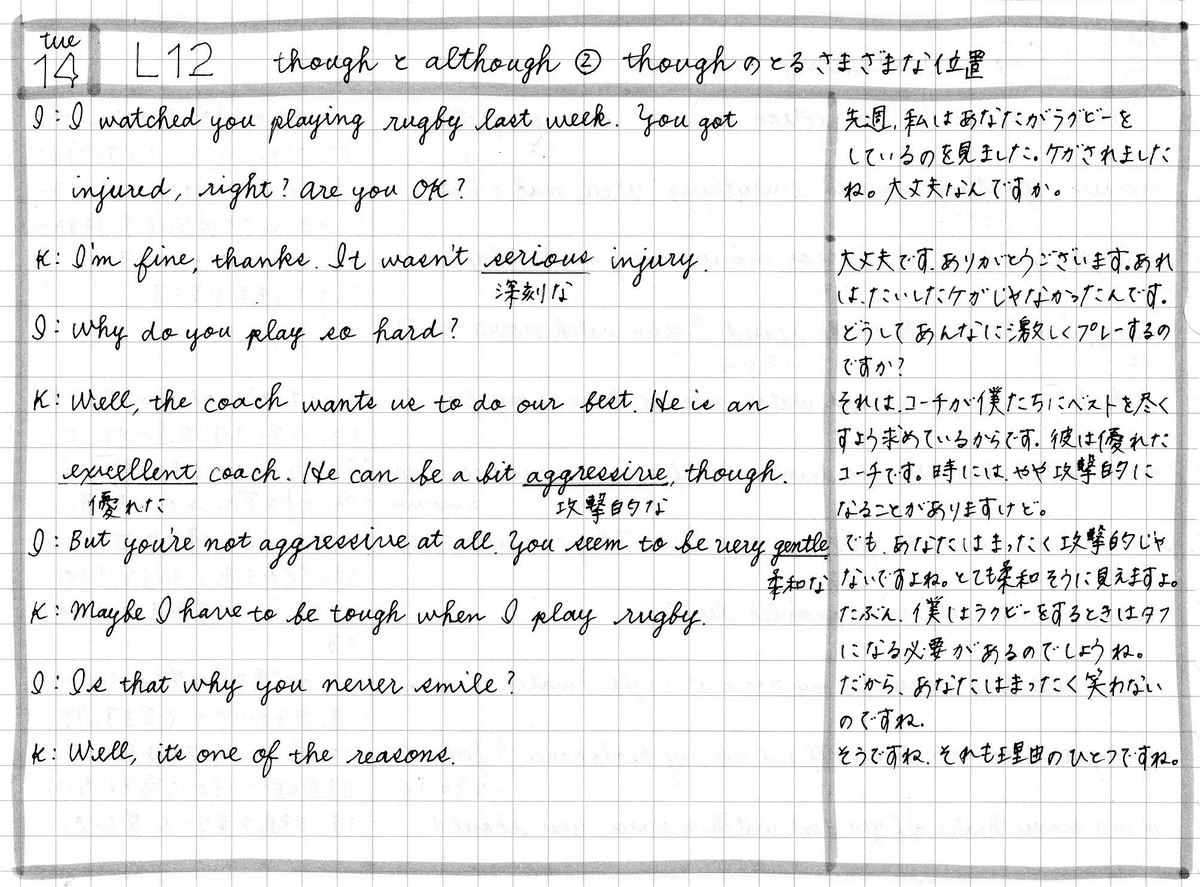 tue
14
L12 thoughとalthough② thoughのとるさまざまな位置
I: I watched you playing rugby last week. You got
injured, right? Are you OK?
K: I'm fine, thanks. It wasn't serious injury.
深刻な
I: Why do you play so hard?
K: Well, the coach wants us to do our best. He is an
excellent coach. He can be a bit aggressive, though.
優れた 攻撃的な
I: But you're not aggressive at all. You seem to be very gentle.
柔和な
K: Maybe I have to be tough when I play rugby.
I: Is that why you never smile?
K: Well, it's one of the reasons.
先週、私はあなたがラグビーを
しているのを見ました。ケガされました
ね。大丈夫なんですか。
大丈夫です、ありがとうございます。あれ
は、たいしたケガじゃなかったんです。
どうしてあんなに激しくプレーするの
ですか?
それは、コーチが僕たちにベストを尽く
すよう求めているからです。彼は優れた
コーチです。時には、やや攻撃的に
なることがありますけど。
でも、あなたはまったく攻撃的じゃ
ないですよね。とても柔和そうに見えますよ。
たぶん、僕はラグビーをするときはタフ
になる必要があるのでしょうね。
だから、あなたはまったく笑わない
のですね.
そうですね、それも理由のひとつですね。